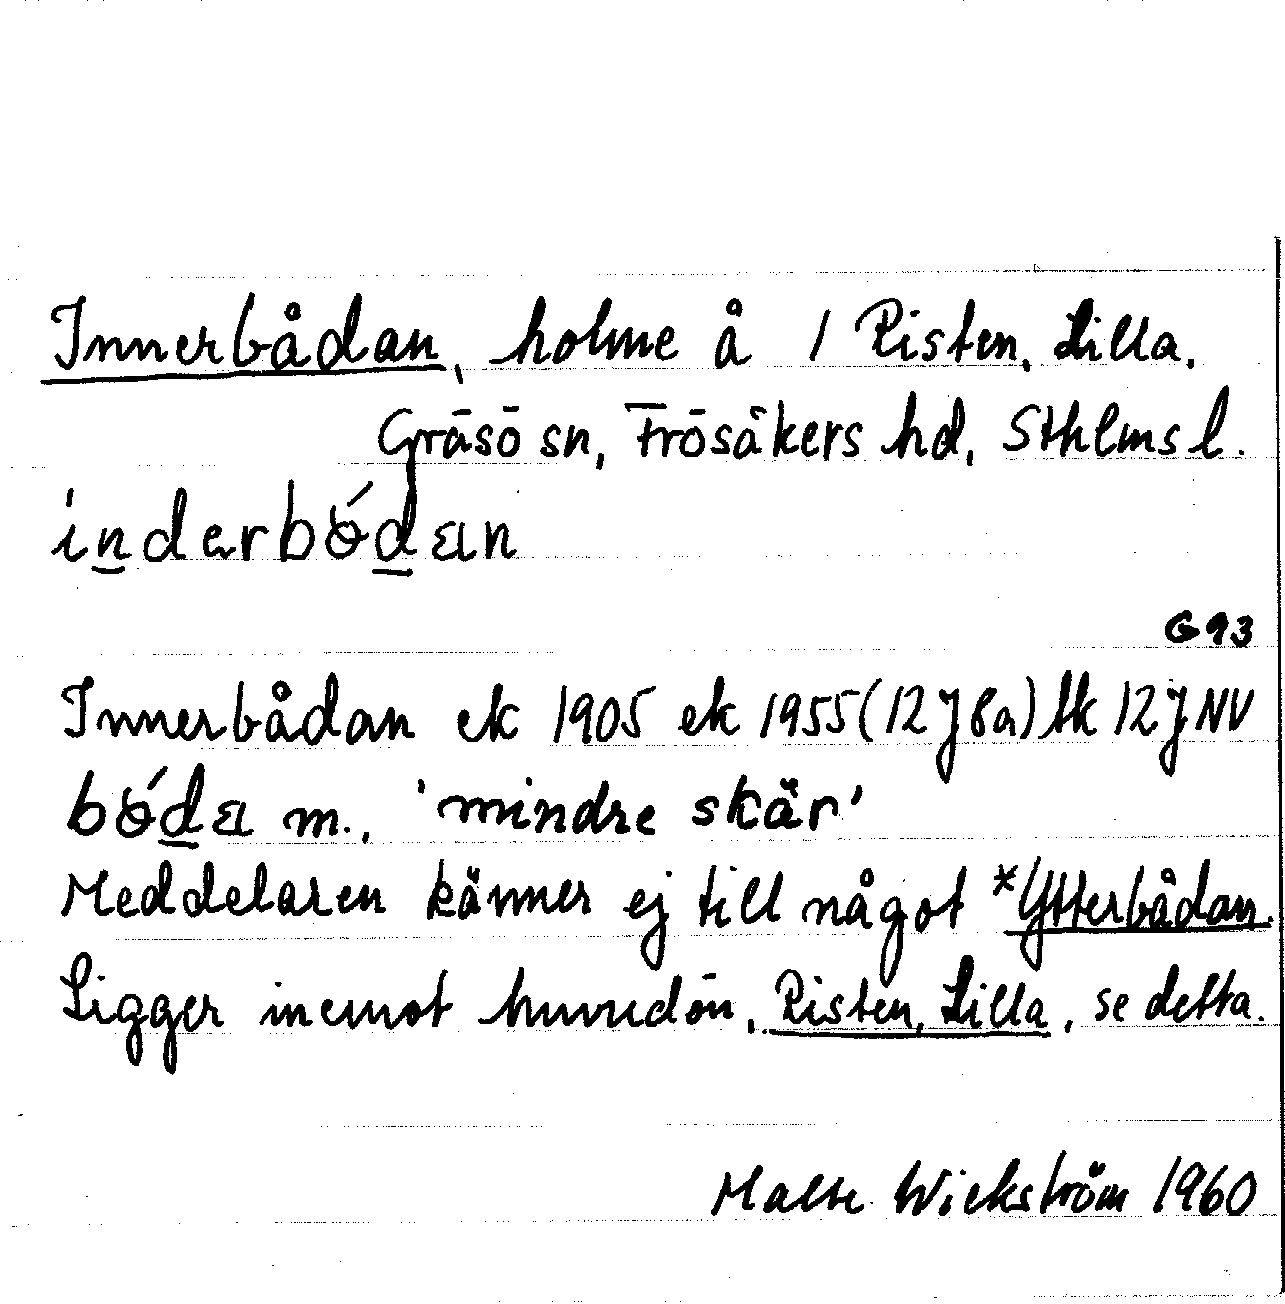 Innerbådan, holme å 1 Risten, Lilla,
Gräsö sn, Frösåkers hd, Sthlms l.
G 93
Innerbådan ek 1905 ek 1955 (12 J 8a) tk 12 J NV
m., 'mindre skär'
Meddelaren känner ej till något *Ytterbådan.
Ligger inemot huvudön, Risten, Lilla, se detta.
Malte Wickström 1960